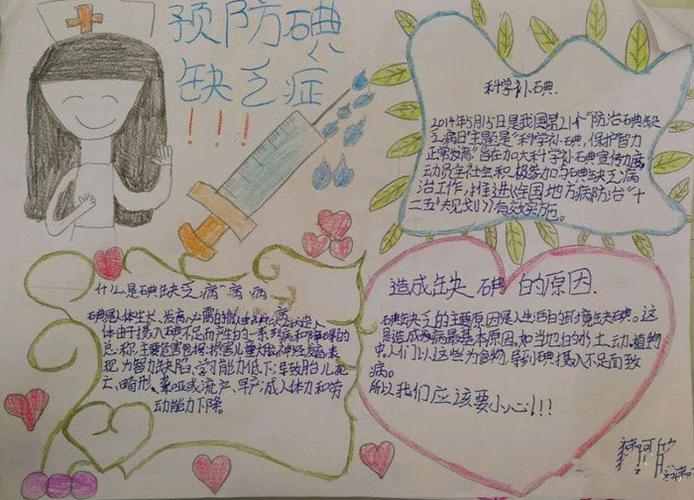 预防碘
缺乏症
!!!
科学补碘.
2014年5月15日是我国第21个“防治碘缺
乏病日”主题是“科学补碘,保护智力
正常发育”旨在加大科学补碘宣传力度,
动员全社会积极参加与碘缺乏病
治工作,推进《全国地方病防治“十
二五”规划》有效实施。
什么是碘缺乏病
碘是人体生长、发育
体由于摄入碘不足而产生的一系列
总称.主要危害包括:损害儿童大脑神经发育表
现为智力缺陷、学习能力低下;导致胎儿死
亡、畸形、聋哑或流产、早产;成人体力和劳
动能力下降
造成缺碘的原因.
碘缺乏的主要原因是人生活的环境缺碘。这
是造成发病最基本原因,如当地的水土、动、植物
中,人们以这些为食物,导到碘摄入不足而致
病。
所以我们应该要小心!!!